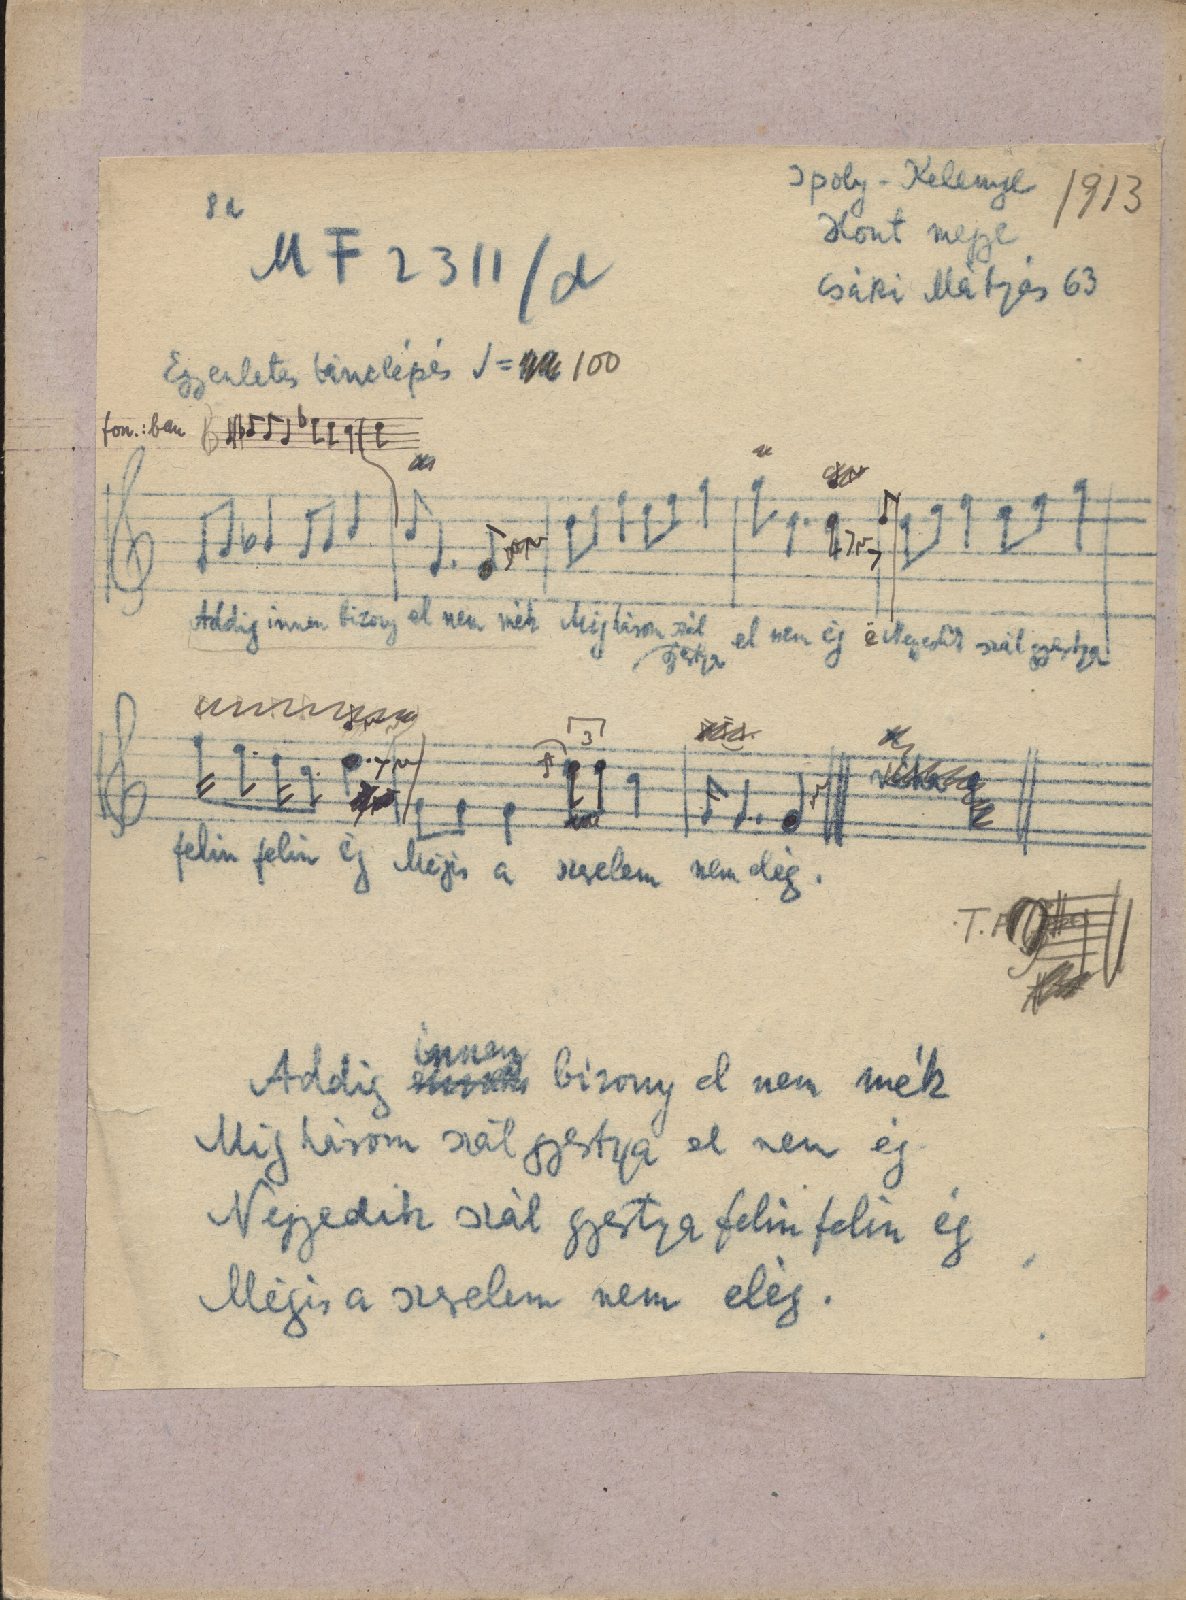 8a
MF 2311/d
Ipoly-Kelenye 1913
Hont megye
Csáki Mátyás 63
Egyenletes tánclépés ♩= 100
fon.:ban
Addig innen bizony el nem mék Mig három szál gyertya el nem ég é Negyedik szál gyertya
3
felin felin ég Mégis a szerelem nem elég.
Addig innen bizony el nem mék
Mig három szál gyertya el nem ég
Negyedik szál gyertya felin felin ég
Mégis a szerelem nem elég.